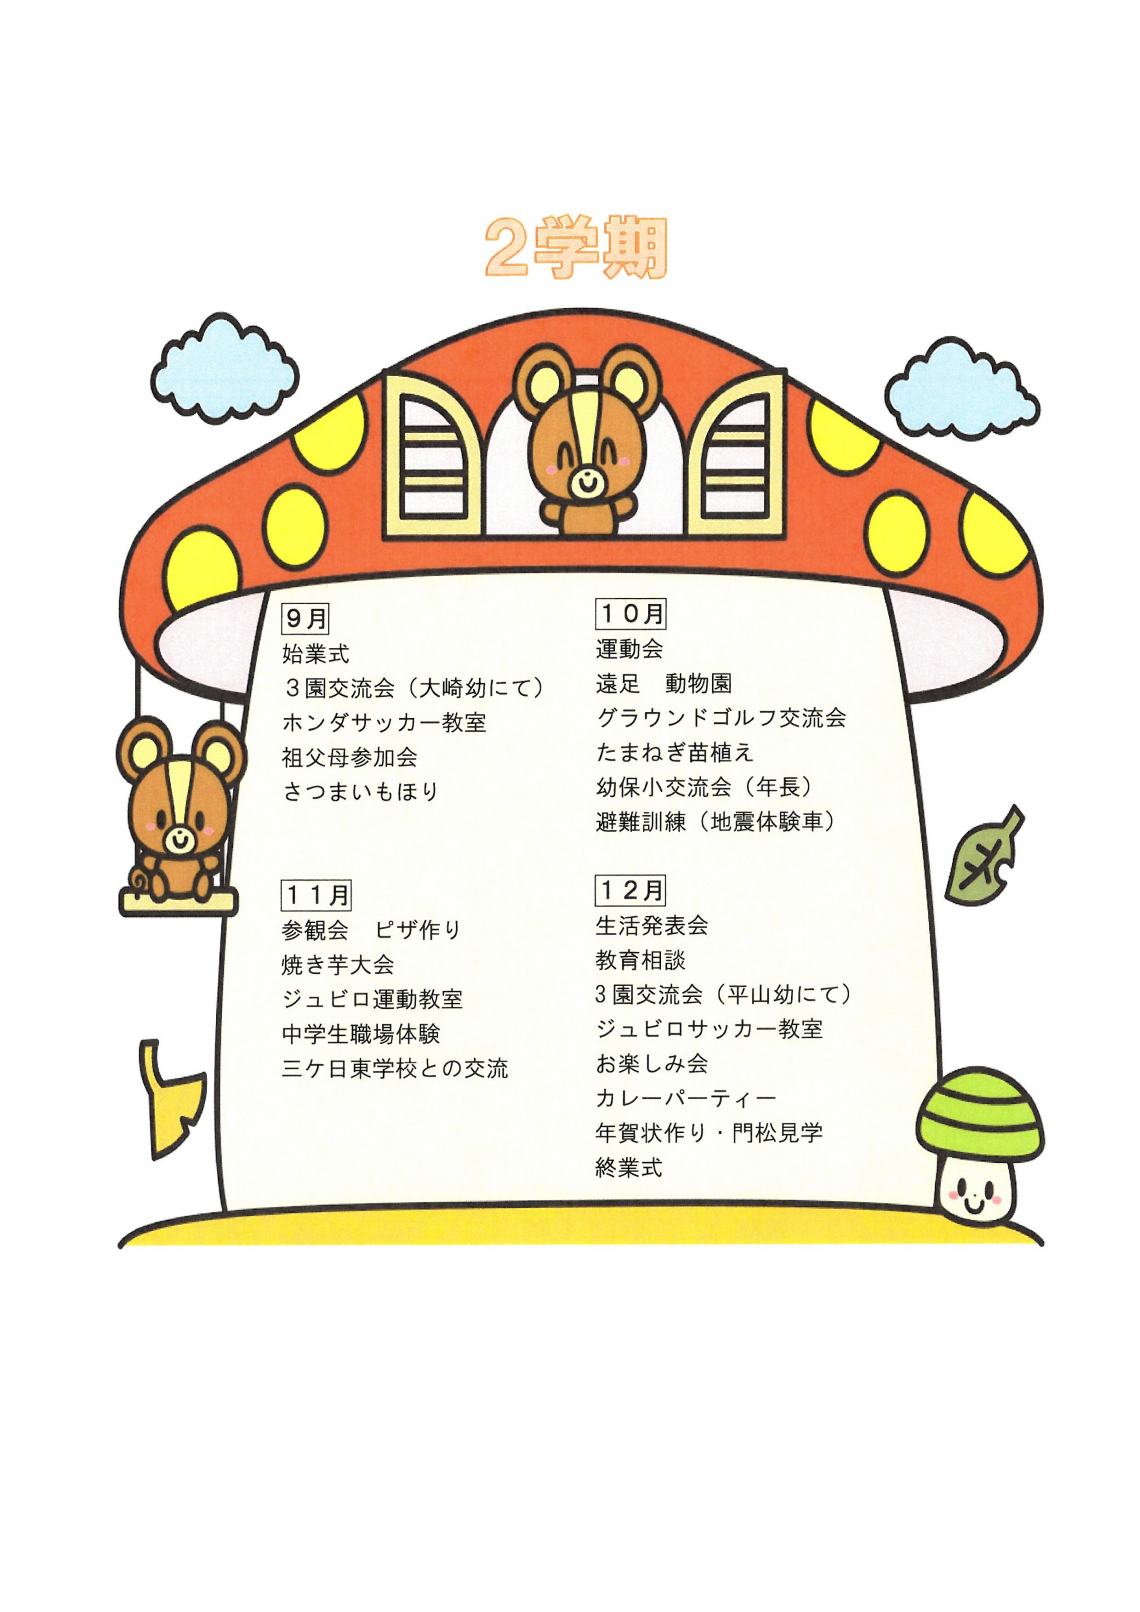 2学期
9月
始業式
３園交流会（大崎幼にて）
ホンダサッカー教室
祖父母参加会
さつまいもほり
１０月
運動会
遠足　動物園
グラウンドゴルフ交流会
たまねぎ苗植え
幼保小交流会（年長）
避難訓練（地震体験車）
１１月
参観会　ピザ作り
焼き芋大会
ジュビロ運動教室
中学生職場体験
三ケ日東学校との交流
１２月
生活発表会
教育相談
3園交流会（平山幼にて）
ジュビロサッカー教室
お楽しみ会
カレーパーティー
年賀状作り・門松見学
終業式